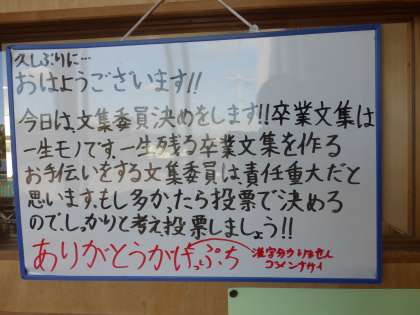 久しぶりに…
おはようございます!!
今日は、文集委員決めをします!!卒業文集は
一生モノです。一生残る卒業文集を作る
お手伝いをする文集委員は責任重大だと
思います。もし多かったら投票で決めろ
ので、しっかりと考え、投票しましょう!!
ありがとうかげっぷち
漢字分かりません
ゴメンナサイ